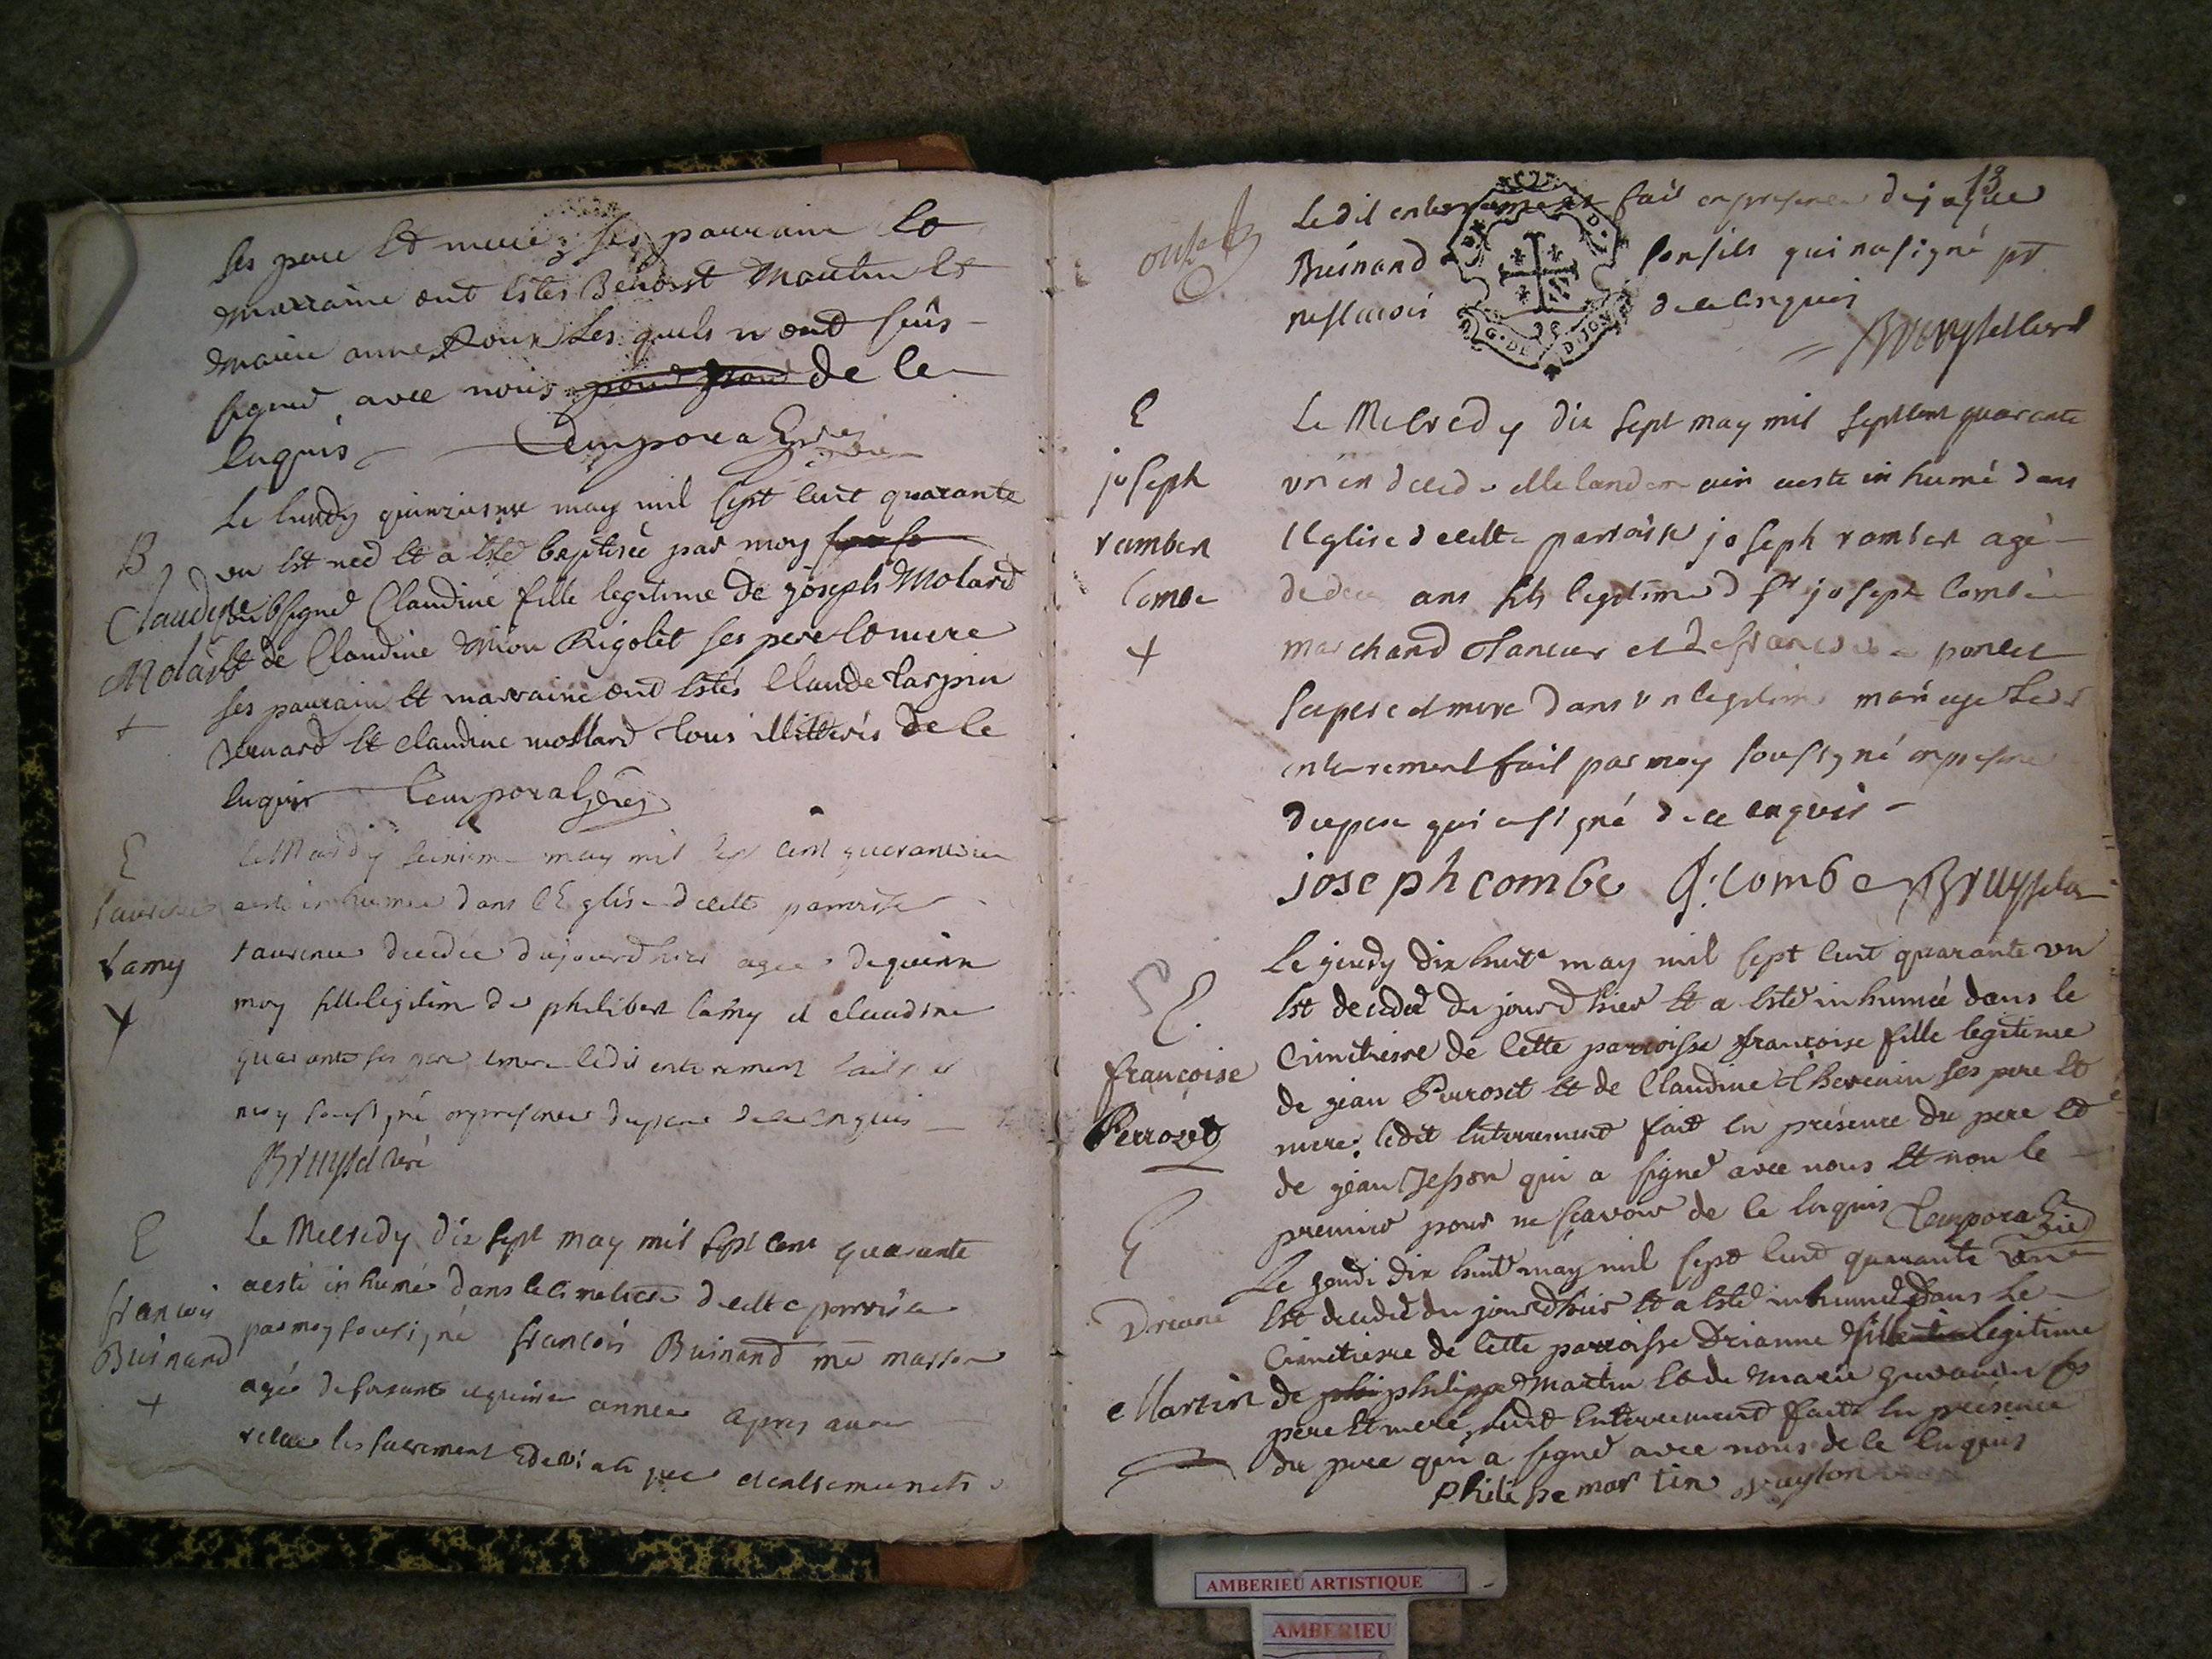 ses pere et mere, ses parrain et
marraine ont estes Benoist Martin et
marie anne Roux Les quels n ont sous
signed avec nous de ce
enquis Temporal
Le lundy quinzieme may mil sept cent quarante
B
un est née et a esté baptisée par moy
Claudine
soubsigné Claudine fille legitime de joseph Molard
Molard
et de Claudine Mion Rigolet ses pere et mere
ses parrain et marraine ont estés Claude tarpin
Renard et claudine mollard tous illitterés de ce
enquis Temporal
E
Le Mardy seizieme may mil sept cent quarante un
Laurence
a esté inhumée dans l'Eglise de cette parroisse
Lamy
Laurence decedée dujourdhier agée de quinze
moy fille legitime de philibert lamy et claudine
quarante ses pere et mere ledit enterrement fait par
moy soussigné en presence du pere de ce enquis
Bruyset curé
E
Le Mecredy dix sept may mil sept cent quarante
a esté inhumé dans le cimetiere de cette parroisse
francois
par moy soussigné francois Buinand me masson
Buinand
agé de soixante et quinze années apres avoir
receu les sacrements de viatique et extremeonction
13
Ledit enterrement fait en presence de jaque
Buinand son fils qui na signé pr
ne scavoir de ce enquis
Bruyset curé
G. DE DIJON
E
Le Mecredy dix sept may mil sept cent quarante
joseph
un et decedé et le landemain a esté inhumé dans
rambert
l'Eglise de cette parroisse joseph rambert agé
Combe
de deux ans fils legitime de sr joseph Combe
marchand tanneur et de francoise poncet
ses pere et mere dans un legitime mariage ledit
enterrement fait par moy soussigné en presence
du pere qui a signé de ce enquis
joseph combe J. combe Bruyset
Le jeudy dix huit may mil sept cent quarante un
E.
Est decedée du jourdhier et a esté inhumée dans le
francoise
Cimetierre de cette parroisse francoise fille legitime
de jean Perroset et de Claudine Thevenin ses pere et
Perrozet
mere; ledit enterrement fait en présence du pere et
de jean Jesson qui a signé avec nous et non le
premier pour ne scavoir de ce enquis Temporal
E
Le jeudi dix huit may mil sept cent quarante un
Driane
Est decedée du jourdhier et a esté inhumée dans le
Cimetierre de cette parroisse Drianne fille legitime
Martin
de philippe Martin et de Marie ses
pere et mere, ledit enterrement fait en présence
du pere qui a signé avec nous de ce enquis
Philipe mar tin
AMBERIEU ARTISTIQUE
AMBERIEU